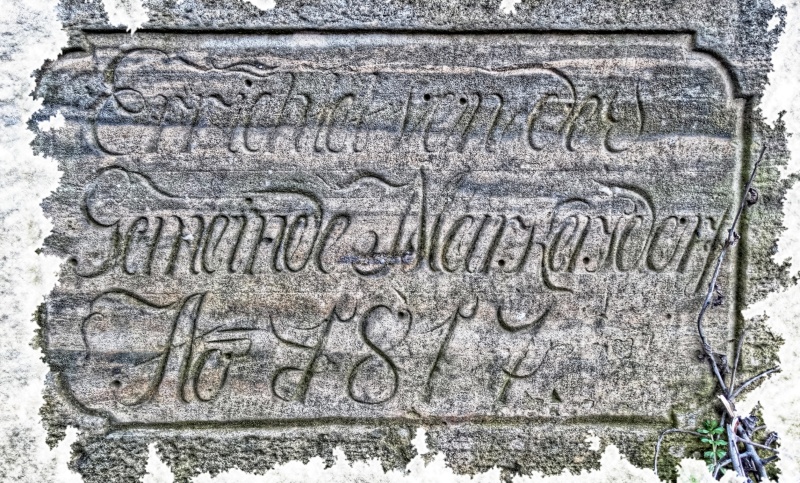 Errichtet von der
Gemeinde Markersdorf
Ao 1817